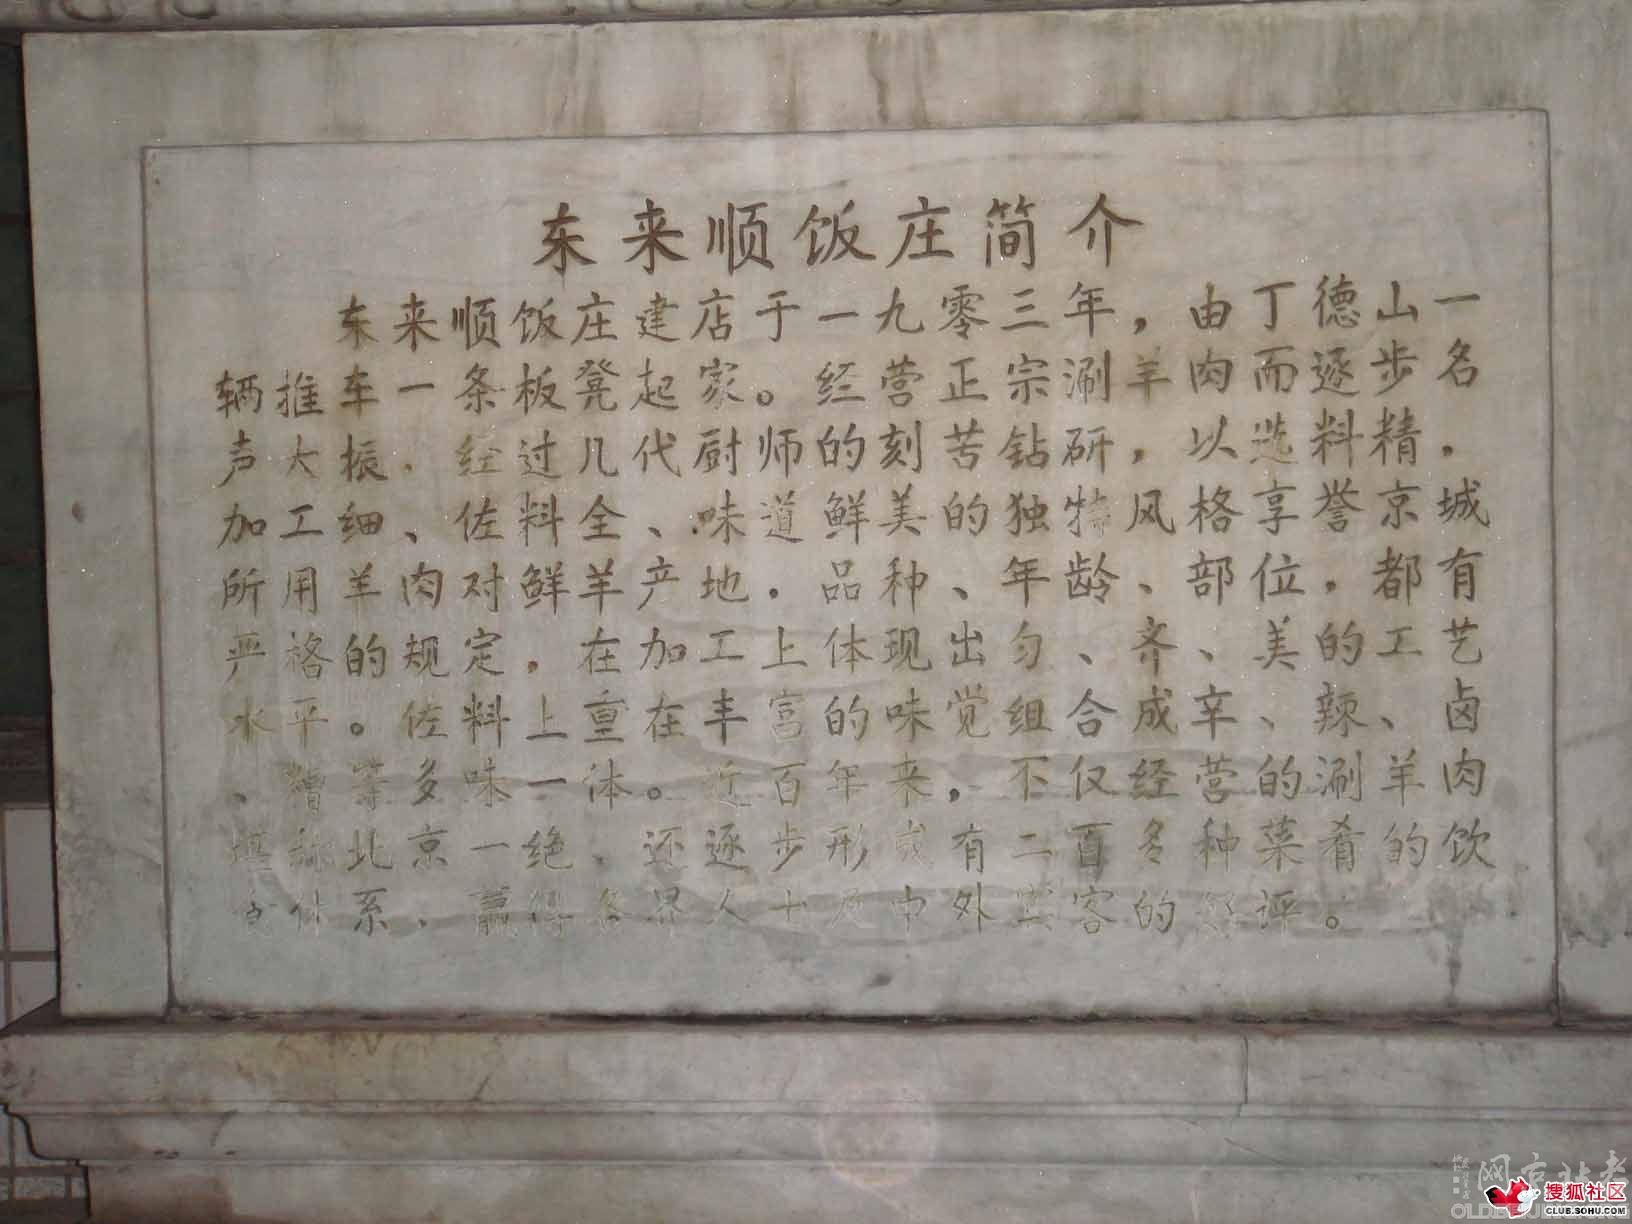 东来顺饭庄简介
东来顺饭庄建店于一九零三年，由丁德山一
辆推车一条板凳起家。经营正宗涮羊肉而逐步名
声大振，经过几代厨师的刻苦钻研，以选料精，
加工细、佐料全、味道鲜美的独特风格享誉京城
所用羊肉对鲜羊产地，品种、年龄、部位，都有
严格的规定，在加工上体现出匀、齐、美的工艺
水平。佐料上重在丰富的味觉组合成辛、辣、卤
、糟等多味一体。近百年来，不仅经营的涮羊肉
堪称北京一绝，还逐步形成有二百多种菜肴的饮
食体系，赢得各界人士及中外宾客的好评。
老北京网
搜狐社区
CLUB.SOHU.COM